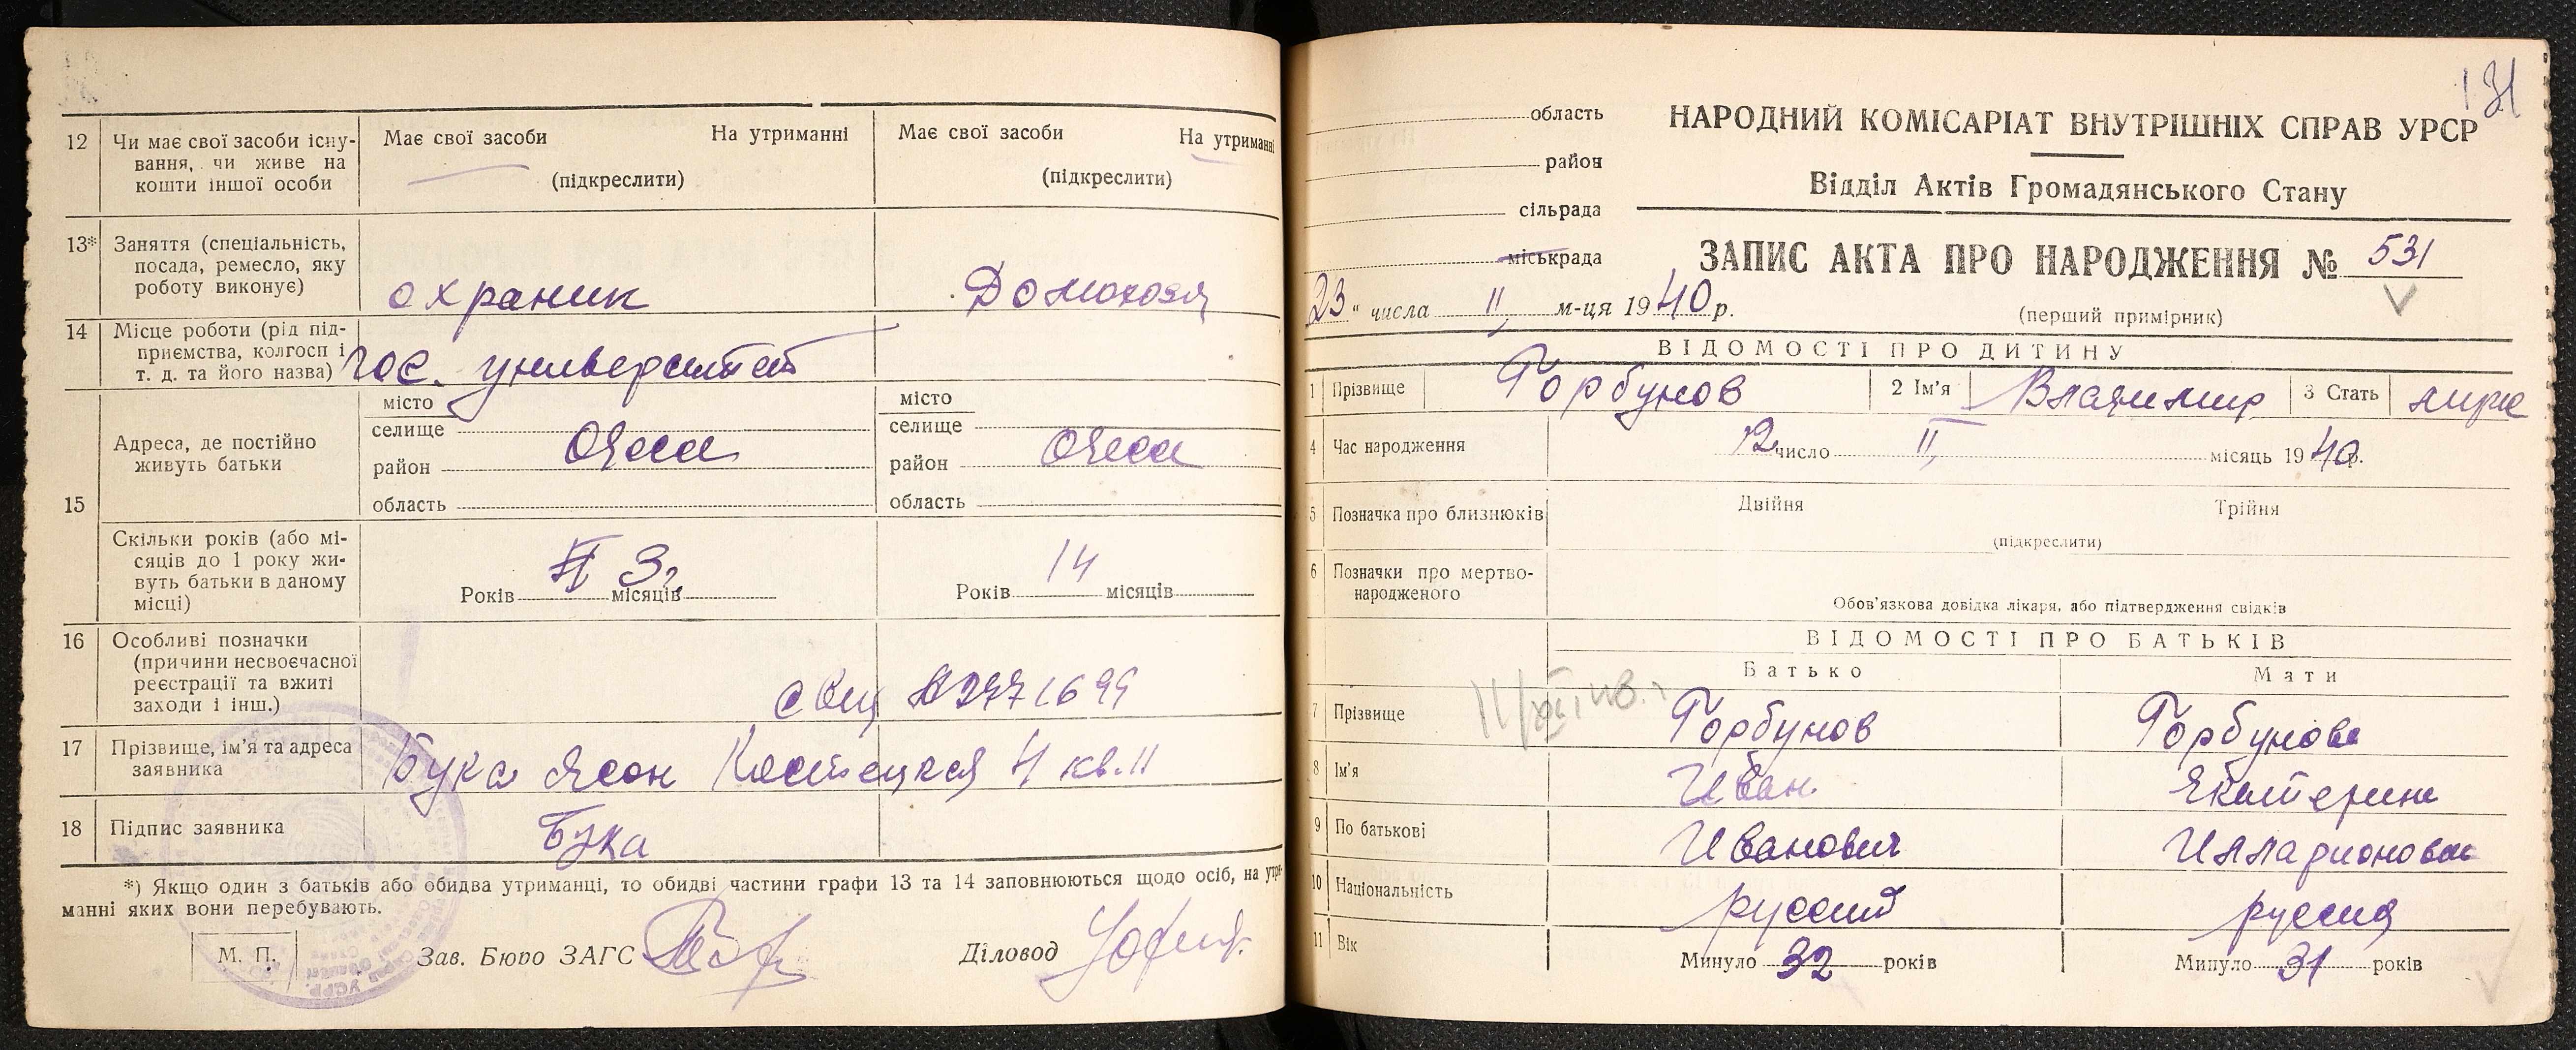 12 Чи має свої засоби існу-
вання, чи живе на
кошти іншої особи
Має свої засоби На утриманні
(підкреслити)
Має свої засоби На утриманні
(підкреслити)
13* Заняття (спеціальність,
посада, ремесло, яку
роботу виконує)
охраник
Домохозя
14 Місце роботи (рід під-
приємства, колгосп і
т. д. та його назва)
Гос. университет
15 Адреса, де постійно
живуть батьки
місто
селище
район
область
Одесса
місто
селище
район
область
Одесса
Скільки років (або мі-
сяців до 1 року жи-
вуть батьки в даному
місці)
Років 3 місяців
Років 14 місяців
16 Особливі позначки
(причини несвоєчасної
реєстрації та вжиті
заходи і інш.)
17 Прізвище, ім'я та адреса
заявника
Бука Ясон Костецкая 4 кв. 11
18 Підпис заявника
Бука
*) Якщо один з батьків або обидва утриманці, то обидві частини графи 13 та 14 заповнюються щодо осіб, на утри-
манні яких вони перебувають.
М. П.
Зав. Бюро ЗАГС
Діловод
131
область
район
сільрада
міськрада
НАРОДНИЙ КОМІСАРІАТ ВНУТРІШНІХ СПРАВ УРСР
Відділ Актів Громадянського Стану
ЗАПИС АКТА ПРО НАРОДЖЕННЯ № 531
23 " числа II м-ця 1940 р.
(перший примірник)
ВІДОМОСТІ ПРО ДИТИНУ
1 Прізвище Горбунов 2 Ім'я Владимир 3 Стать муже
4 Час народження 12 число II місяць 1940 р.
5 Позначка про близнюків Двійня Трійня
(підкреслити)
6 Позначки про мертво-
народженого
Обов'язкова довідка лікаря, або підтвердження свідків
ВІДОМОСТІ ПРО БАТЬКІВ
Батько Мати
7 Прізвище Горбунов Горбунова
8 Ім'я Иван Екатерина
9 По батькові Иванович Илларионовна
10 Національність русский русская
11 Вік Минуло 32 років Минуло 31 років